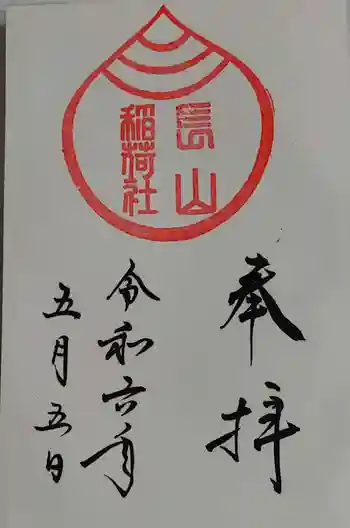 烏山
稲荷社
奉拝
令和六年
五月五日